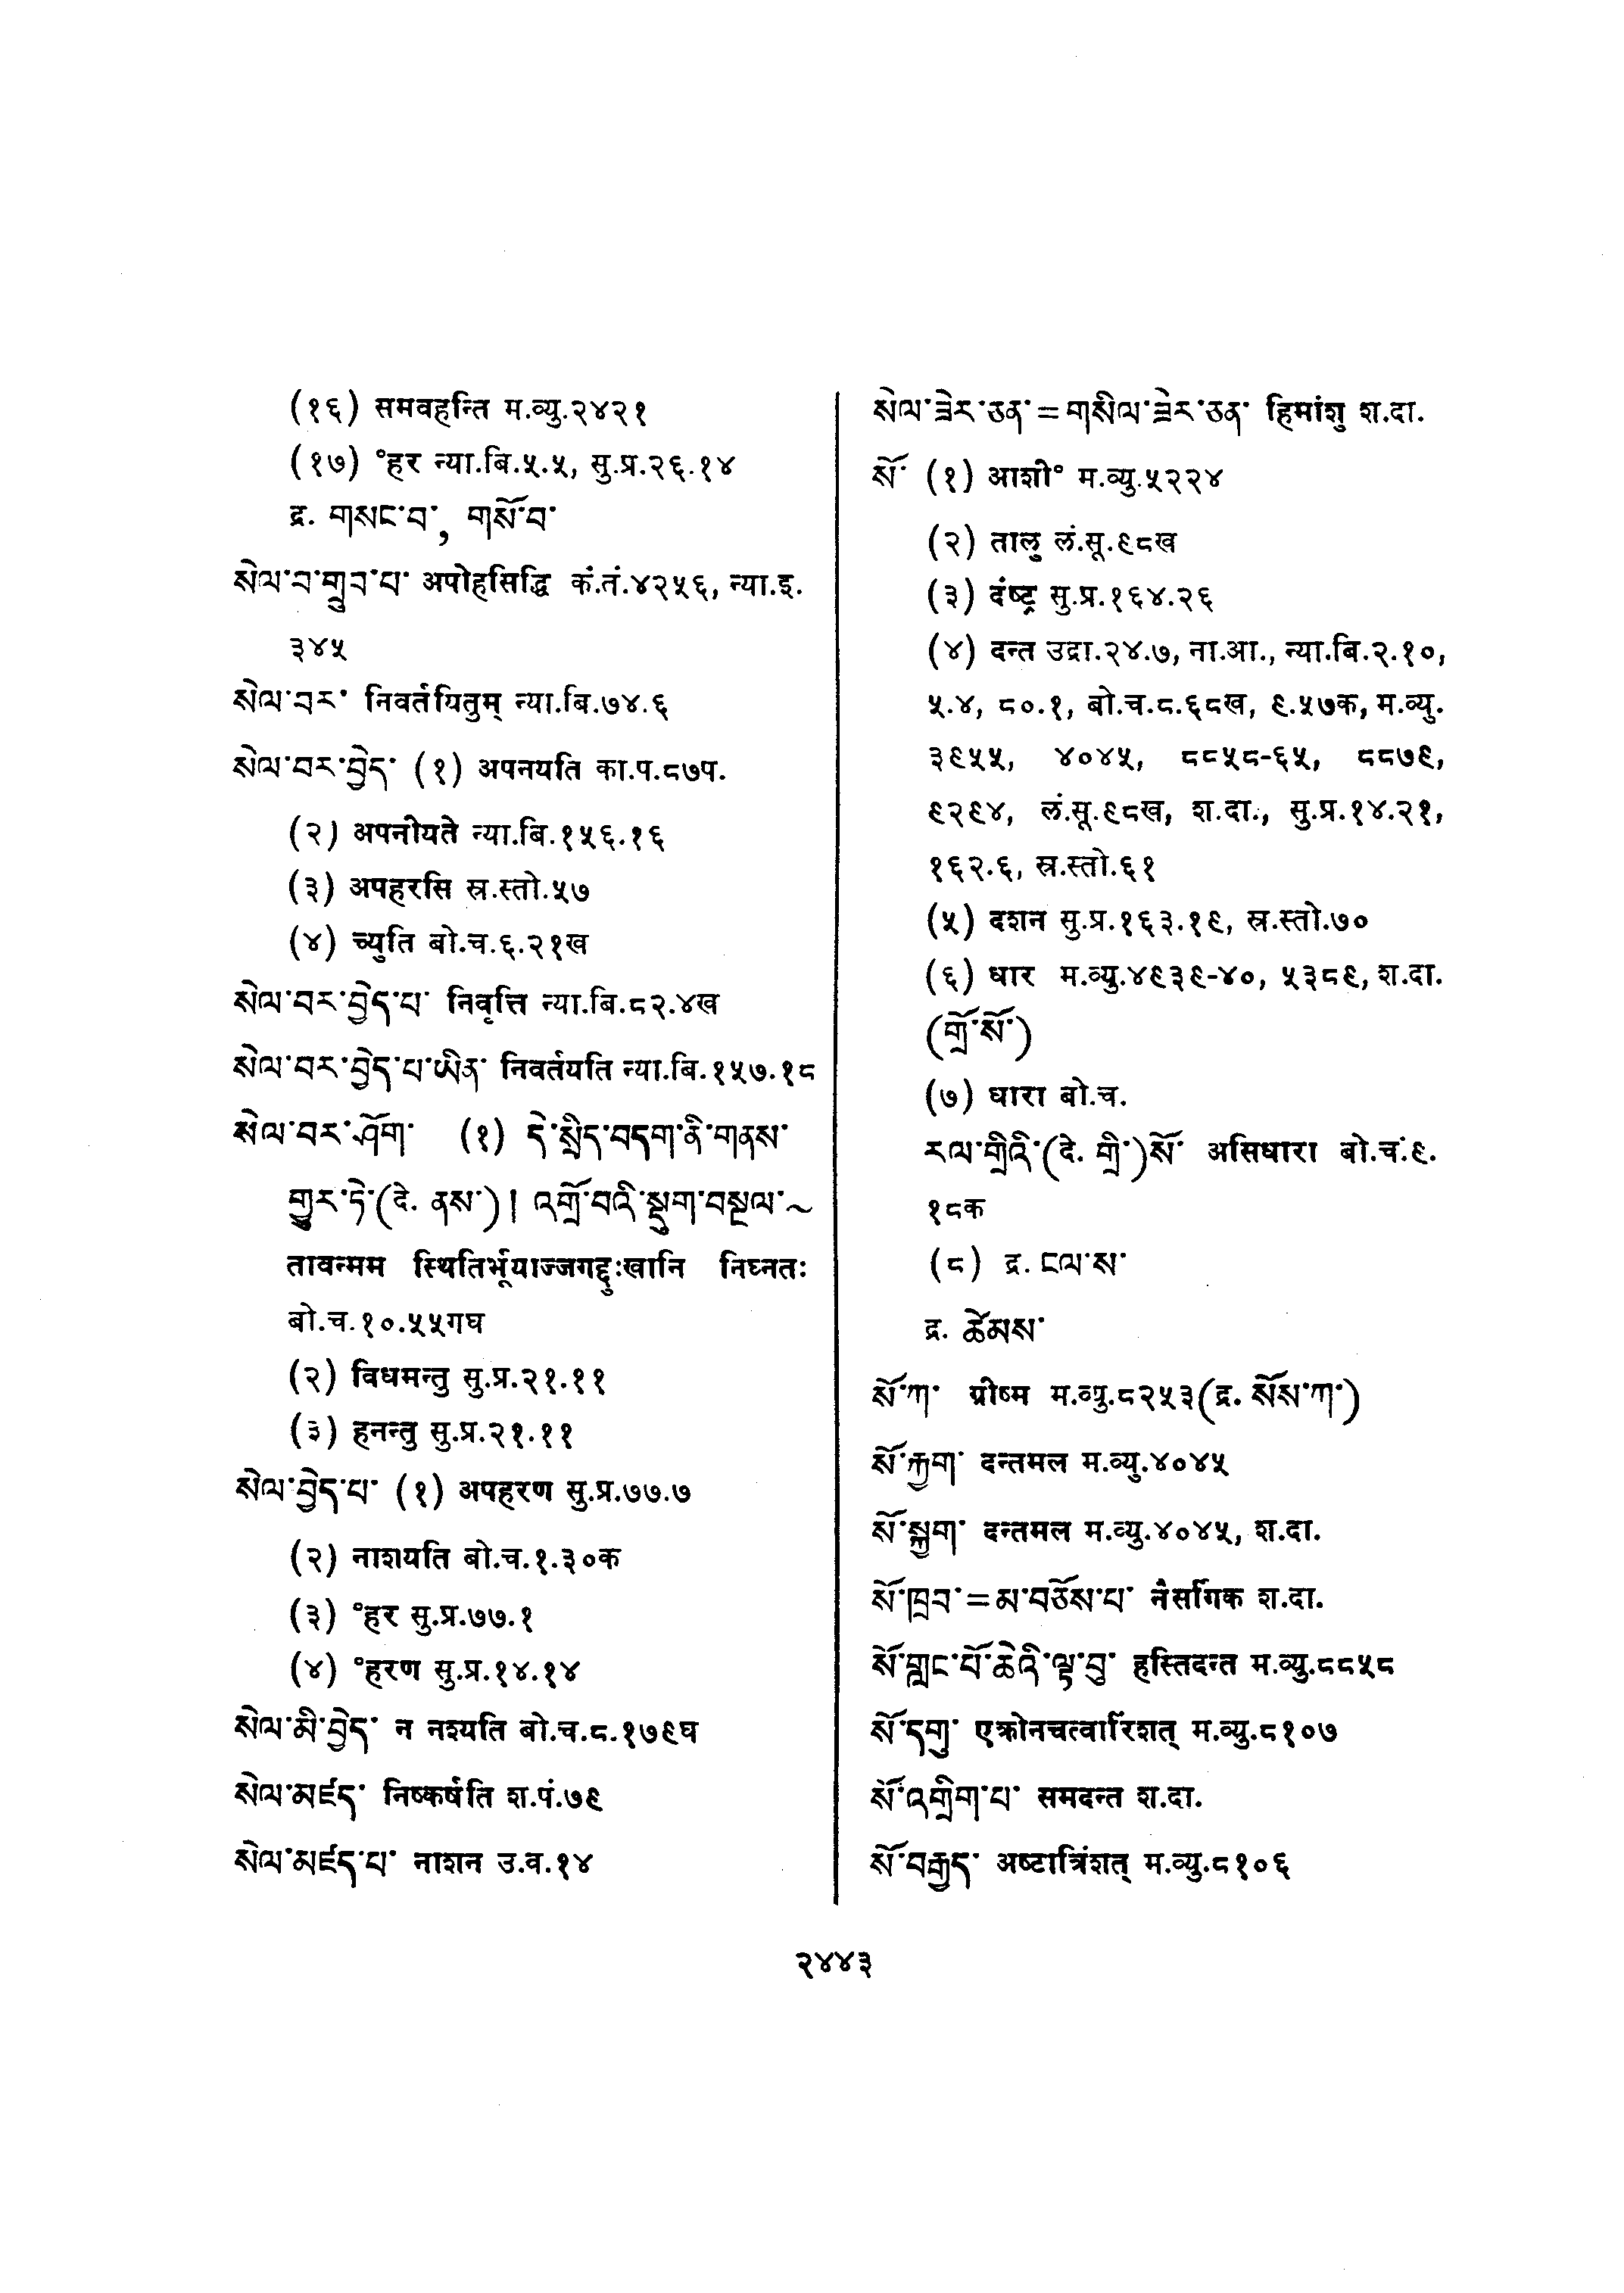 (१६) समवहन्ति म.व्यु.२४२१
(१७) °हर न्या.बि.५.५, सु.प्र.२६.१४
द्र. གསང་བ་, གསོ་བ་
སེལ་བ་གྲུབ་པ་ अपोहसिद्धि कं.तं.४२५६, न्या.इ.
३४५
སེལ་བར་ निवर्तयितुम् न्या.बि.७४.६
སེལ་བར་བྱེད་ (१) अपनयति का.प.८७प.
(२) अपनीयते न्या.बि.१५६.१६
(३) अपहरसि स्र.स्तो.५७
(४) च्युति बो.च.६.२१ख
སེལ་བར་བྱེད་པ་ निवृत्ति न्या.बि.८२.४ख
སེལ་བར་བྱེད་པ་ཡིན་ निवर्तयति न्या.बि.१५७.१८
སེལ་བར་ཤོག་ (१) དེ་སྲིད་བདག་ནི་གནས་
གྱུར་ཏེ་(दे. ནས་)། འགྲོ་བའི་སྡུག་བསྔལ་~
तावन्मम स्थितिर्भूयाज्जगद्दुःखानि निघ्नतः
बो.च.१०.५५गघ
(२) विधमन्तु सु.प्र.२१.११
(३) हनन्तु सु.प्र.२१.११
སེལ་བྱེད་པ་ (१) अपहरण सु.प्र.७७.७
(२) नाशयति बो.च.१.३०क
(३) °हर सु.प्र.७७.१
(४) °हरण सु.प्र.१४.१४
སེལ་མི་བྱེད་ न नश्यति बो.च.८.१७९घ
སེལ་མཛད་ निष्कर्षति श.पं.७९
སེལ་མཛད་པ་ नाशन उ.व.१४
སེལ་ཟེར་ཅན་=གསིལ་ཟེར་ཅན་ हिमांशु श.दा.
སོ་ (१) आशी° म.व्यु.५२२४
(२) तालु लं.सू.९८ख
(३) दंष्ट्र सु.प्र.१६४.२६
(४) दन्त उद्रा.२४.७, ना.आ., न्या.बि.२.१०,
५.४, ८०.१, बो.च.८.६८ख, ९.५७क, म.व्यु.
३९५५, ४०४५, ८८५८-६५, ८८७९,
९२९४, लं.सू.९८ख, श.दा., सु.प्र.१४.२१,
१६२.६, स्र.स्तो.६१
(५) दशन सु.प्र.१६३.१९, स्र.स्तो.७०
(६) धार म.व्यु.४९३९-४०, ५३८९, श.दा.
(གྲོ་སོ་)
(७) धारा बो.च.
རལ་གྲིའི་(दे. གྲི་)སོ་ असिधारा बो.च.९.
१८क
(८) द्र. ངལ་ས་
द्र. ཚེམས་
སོ་ཀ་ ग्रीष्म म.व्यु.८२५३(द्र. སོས་ཀ་)
སོ་རྐྱག་ दन्तमल म.व्यु.४०४५
སོ་སྐྱག་ दन्तमल म.व्यु.४०४५, श.दा.
སོ་ཁྲབ་=མ་བཅོས་པ་ नैसर्गिक श.दा.
སོ་གླང་པོ་ཆེའི་ལྟ་བུ་ हस्तिदन्त म.व्यु.८८५८
སོ་དགུ་ एकोनचत्वारिंशत् म.व्यु.८१०७
སོ་འགྲིག་པ་ समदन्त श.दा.
སོ་བརྒྱད་ अष्टात्रिंशत् म.व्यु.८१०६
२४४३